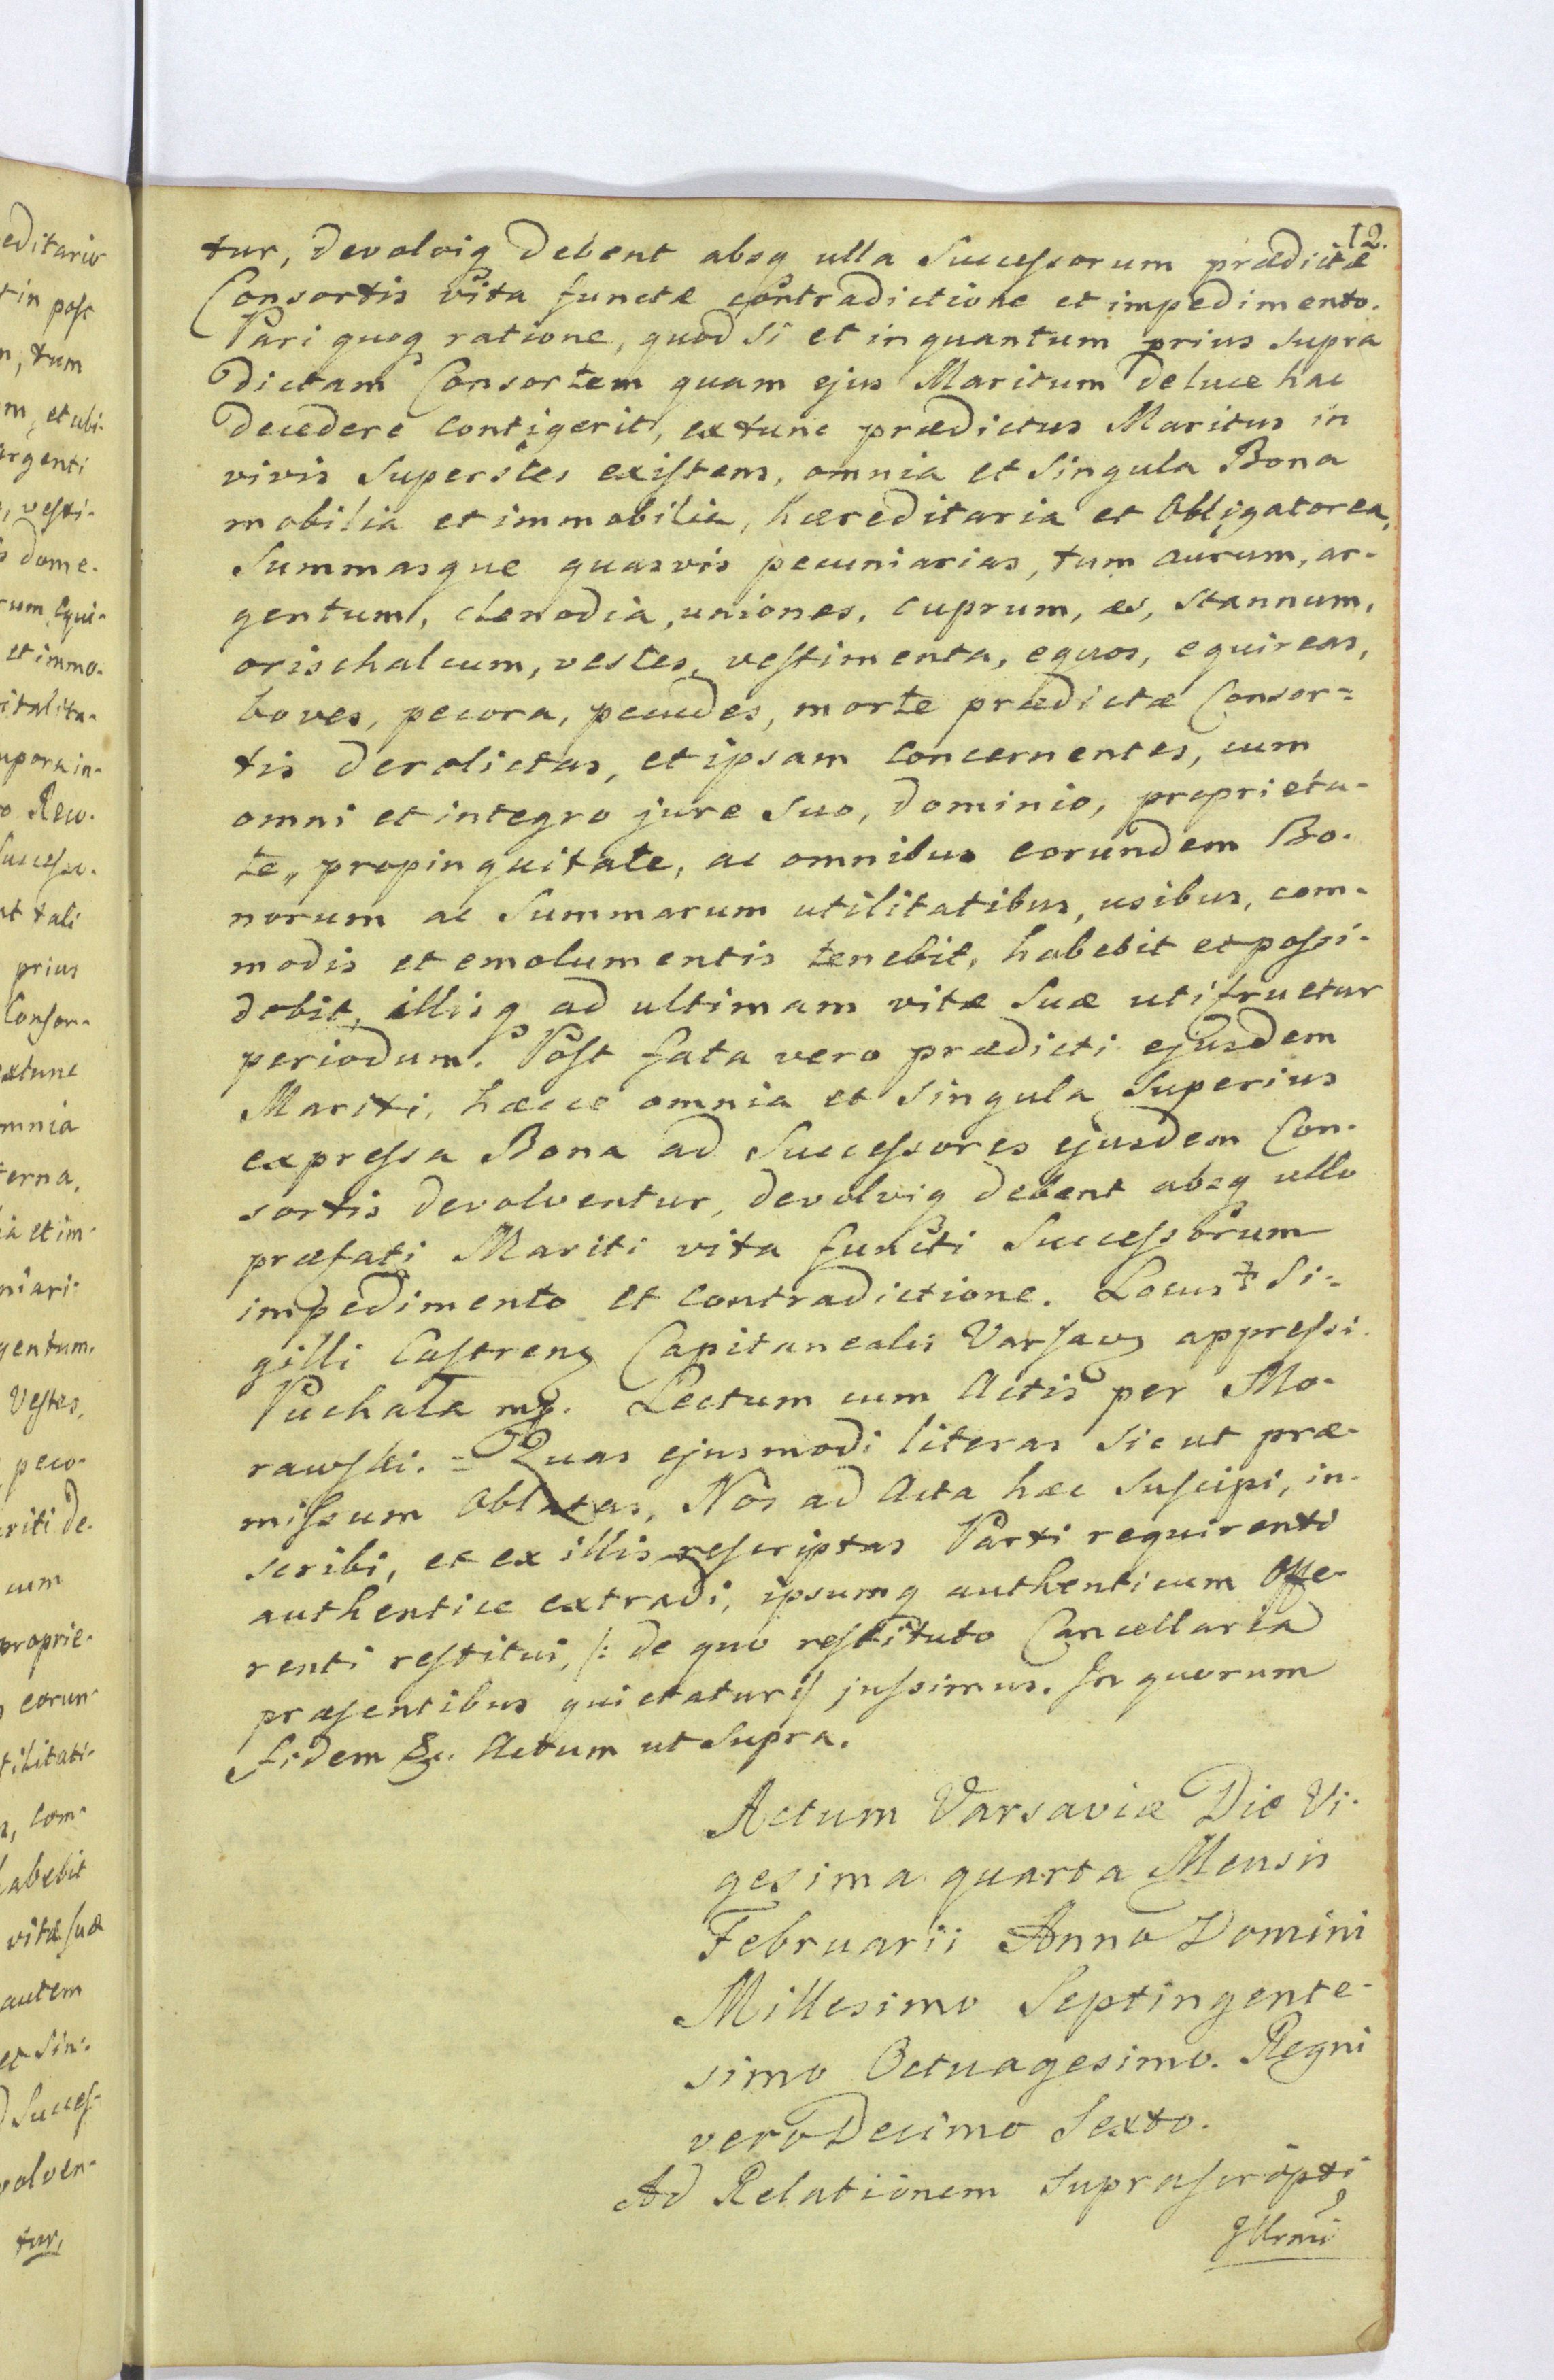 12.
tur, devolviq debent absq ulla Successorum prædictæ
Consortis vita functæ contradictione et impedimento.
Pari quoq ratione, quod si et inquantum prius supra
dictam Consortem quam ejus Maritum de luce hac
decedere contigerit, extunc prædictus Maritus in
vivis Superstes existens, omnia et Singula Bona
mobilia et immobilia, hæreditaria et Obligatorea,
Summasque quasvis pecuniarias, tum aurum, ar-
gentum, clenodia, uniones, cuprum, æs, stannum,
orischalcum, vestes, vestimenta, equos, equireas,
boves, pecora, pecudes, morte prædictæ Consor=
tis derelictas, et ipsam concernentes, cum
omni et integro jure suo, dominio, proprieta-
te, propinquitate, ac omnibus eorundem Bo-
norum ac Summarum utilitatibus, usibus, com-
modis et emolumentis tenebit, habebit et possi-
debit, illisq ad ultimam vitæ suæ utifruetur
periodum. Post fata vero prædicti ejusdem
Mariti, hæcce omnia et singula superius
expressa Bona ad Successores ejusdem Con-
sortis devolventur, devolviq debent absq ullo
præfati Mariti vita functi Successorum
impedimento et contradictione. Locus Si=
gilli Castrens Capitanealis Varsavs appressi.
Puchała mp. Lectum cum Actis per Mo-
rawski. = Quas ejusmodi literas sicut præ-
missum oblatas, Nos ad Acta hæc suscipi, in-
scribi, et ex illis rescriptas Parti requirenti
authentice extradi, ipsumq authenticum offe-
renti restitui, /: de quo restituto Cancellaria
præsentibus quietatur :/ jussimus. In quorum
fidem &c. Actum ut supra.
Actum Varsaviæ Die Vi-
gesima quarta Mensis
Februarii Anno Domini
Millesimo Septingente-
simo Octuagesimo. Regni
vero Decimo Sexto.
Ad Relationem suprascripti
editario
tin post
n, tum
m, et ubi-
argenti
, vesti-
s dome-
rum, equi-
et immo-
italita-
mpora in-
o Reco-
Successo-
nt tali
prius
Consor-
extunc
omnia
terna,
ia et im-
niari-
gentum,
Vestes,
peco-
ariti de-
cum
proprie-
s eorun-
tilitati-
s, com-
habebit
vitæ suæ
autem
et Sin-
d Succes-
volven-
tur,